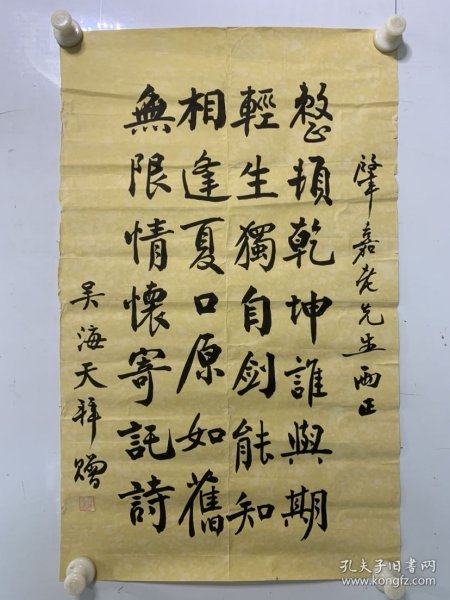 肇嘉老先生両正
整頓乾坤誰與期
輕生獨自剑能知
相逢夏口原如舊
無限情懷寄託詩
吴海天拜贈
孔夫子旧书网
www.kongfz.com